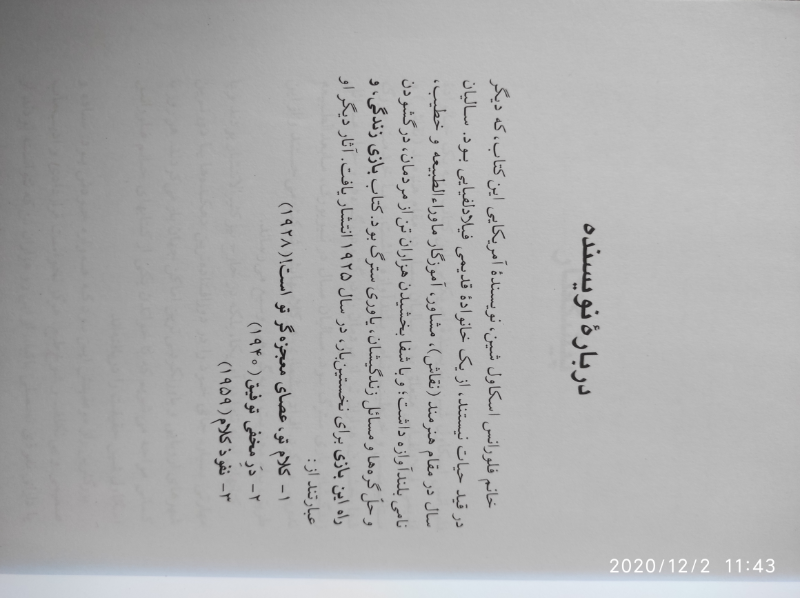 دربارهٔ نویسنده
خانم فلورانس اسکاول شین، نویسندهٔ آمریکایی این کتاب، که دیگر
در قید حیات نیستند، از یک خانوادهٔ قدیمی فیلادلفیایی بود. سالیان
سال در مقام هنرمند (نقاش)، مشاور، آموزگار ماوراءالطبیعه و خطیب،
نامی بلندآوازه داشت؛ و با شفا بخشیدن هزاران تن از مردمان، در گشودن
و حلّ گره‌ها و مسائل زندگیشان، یاوری سترگ بود. کتاب بازی زندگی، و
راه این بازی برای نخستین‌بار، در سال ۱۹۲۵ انتشار یافت. آثار دیگر او
عبارتند از:
۱- کلام تو، عصای معجزه‌گر تو است! (۱۹۲۸)
۲- درِ مخفی توفیق (۱۹۴۰)
۳- نفوذ کلام (۱۹۵۹)
2020/12/2 11:43